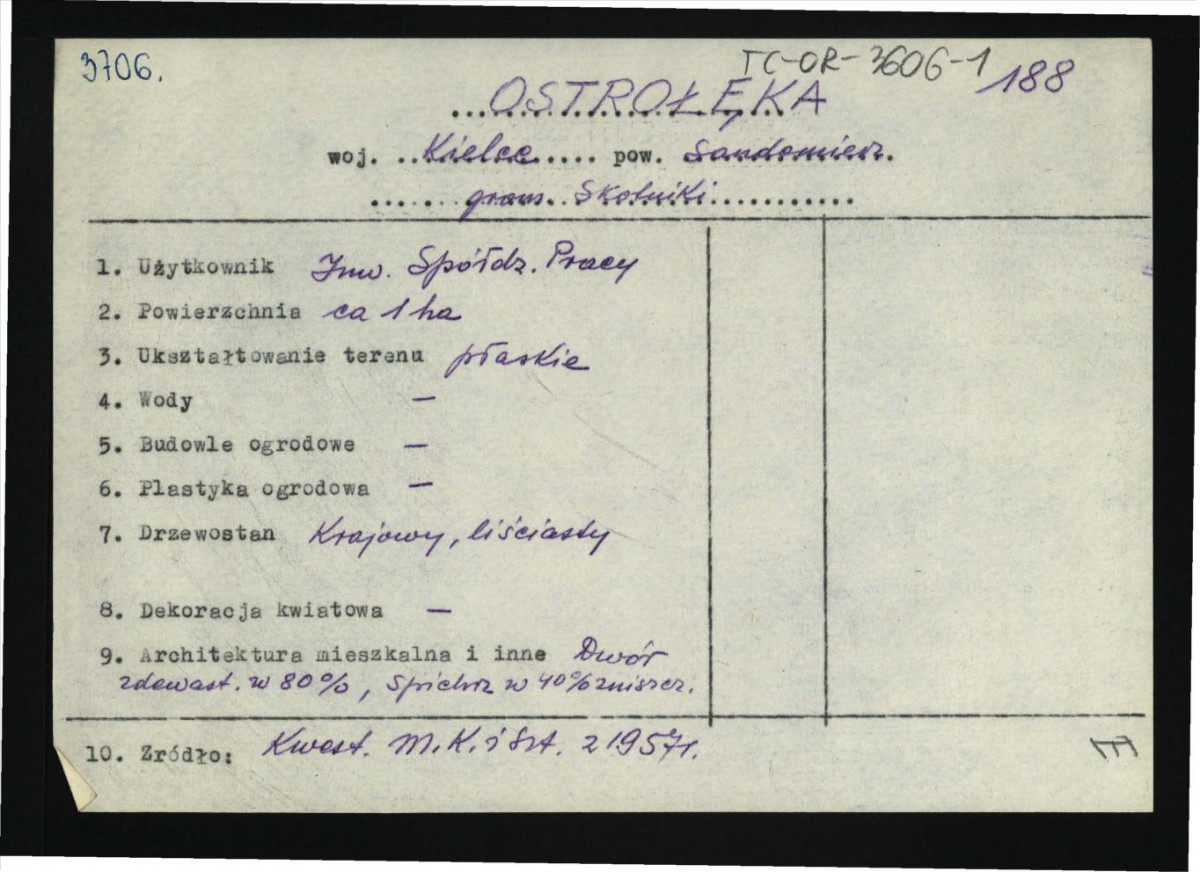 3706.
TC-OR-3606-1
188
OSTROŁĘKA
woj. Kielce pow. Sandomierz.
grom. Skotniki
1. Użytkownik Inw. Spółdz. Pracy
2. Powierzchnia ca 1 ha
3. Ukształtowanie terenu płaskie
4. Wody —
5. Budowle ogrodowe —
6. Plastyka ogrodowa —
7. Drzewostan Krajowy, liściasty
8. Dekoracja kwiatowa —
9. Architektura mieszkalna i inne Dwór
zdewast. w 80%, spichrz w 40% zniszcz.
10. Zródło: Kwest. M.K. i Szt. z 1957 r.